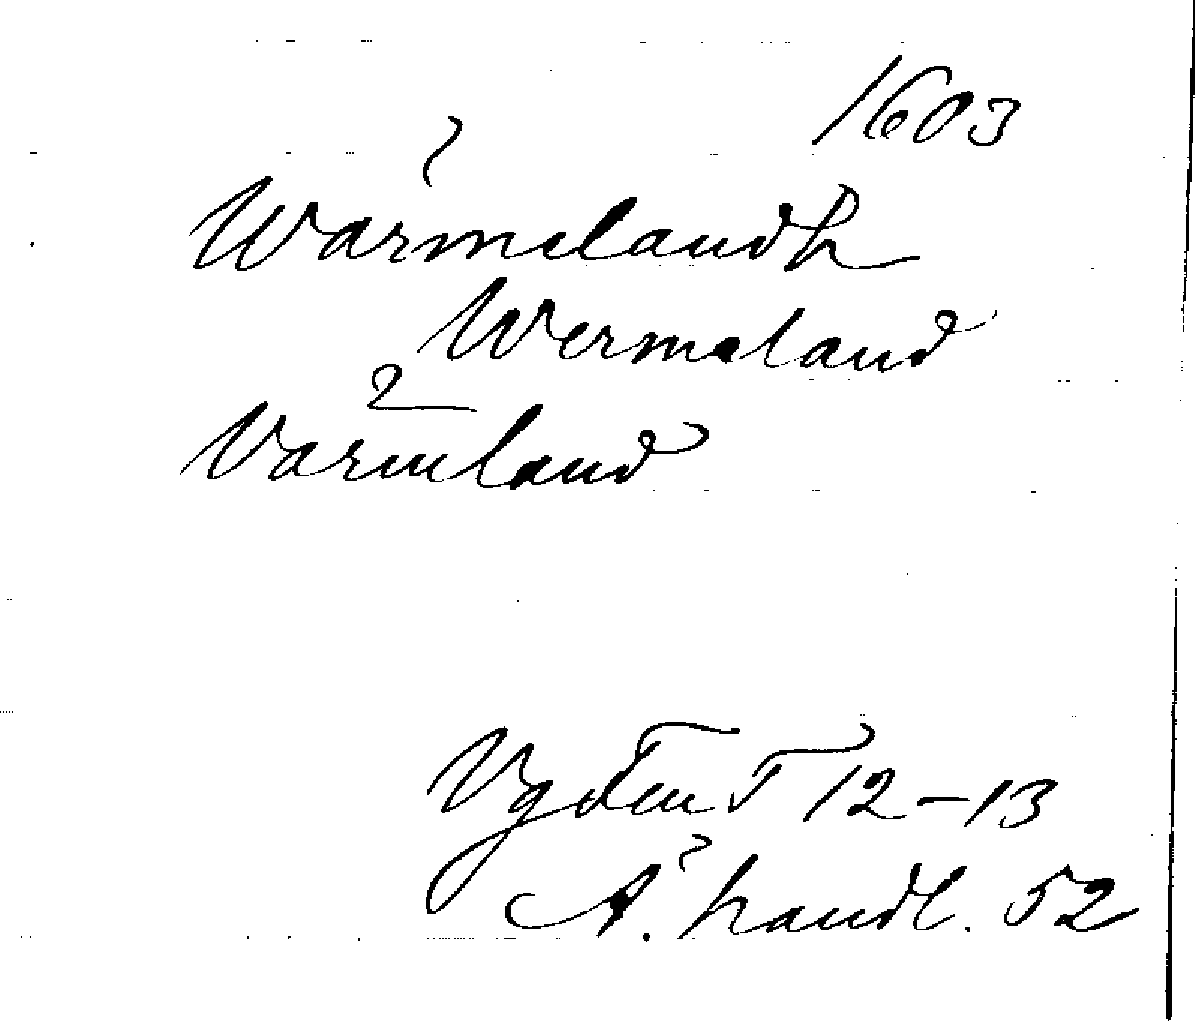 1603
Wärmelandh
Wermeland
Värmland
Vgdten T 12-13
Ä. handl. 52